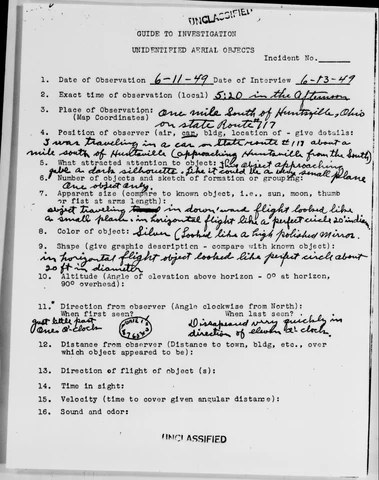 UNCLASSIFIED
GUIDE TO INVESTIGATION
UNIDENTIFIED AERIAL OBJECTS
Incident No.
1. Date of Observation 6-11-49 Date of Interview 6-13-49
2. Exact time of observation (local) 5:20 in the Afternoon
3. Place of Observation: One mile South of Huntsville, Ohio
(Map Coordinates) on state Route #117
4. Position of observer (air, car, bldg, location of - give details):
I was traveling in a car on state route #117 about a
mile south of Huntsville (approaching Huntsville from the South)
5. What attracted attention to object: This object approaching
gave a dark silhouette, like it could be a very small plane
6. Number of objects and sketch of formation or grouping:
One object only.
7. Apparent size (compare to known object, i.e., sun, moon, thumb
or fist at arms length):
object traveling in downward flight looked like
a small plane. in horizontal flight like a perfect circle 20" in dia.
8. Color of object: Silver (Looked like a high polished mirror.
9. Shape (give graphic description - compare with known object):
in horizontal flight object looked like perfect circle about
20 ft in diameter
10. Altitude (Angle of elevation above horizon - 0° at horizon,
90° overhead):
11. Direction from observer (Angle clockwise from North):
When first seen? When last seen?
Just little past Disapeared very quickly in
Ones o'clock direction of o'clock
12. Distance from observer (Distance to town, bldg, etc., over
which object appeared to be):
13. Direction of flight of object (s):
14. Time in sight:
15. Velocity (time to cover given angular distance):
16. Sound and odor:
UNCLASSIFIED